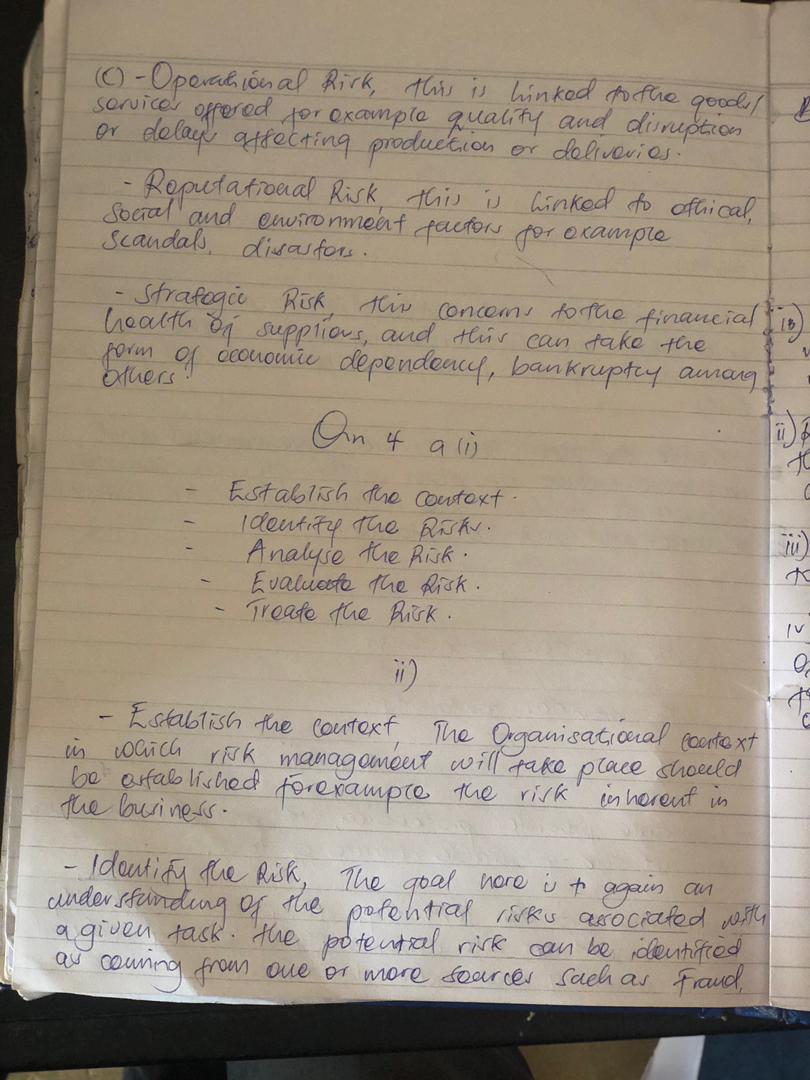 (C) - Operational Risk, this is linked to the goods/
services offered for example quality and disruption
or delays affecting production or deliveries.
- Reputational Risk, this is linked to ethical,
social and environment factors for example
scandals, disasters.
- Strategic Risk, this concerns to the financial
health of suppliers, and this can take the
form of economic dependency, bankruptcy among
others.
Qn 4 a (i)
- Establish the context.
- Identify the Risks.
- Analyse the Risk.
- Evaluate the Risk.
- Treate the Risk.
ii)
- Establish the context, The Organisational context
in which risk management will take place should
be established forexample the risk inherent in
the business.
- Identify the Risk, The goal here is to again an
understanding of the potential risks associated with
a given task. the potential risk can be identified
as coming from one or more sources such as Fraud,
ii)
iii)
iv